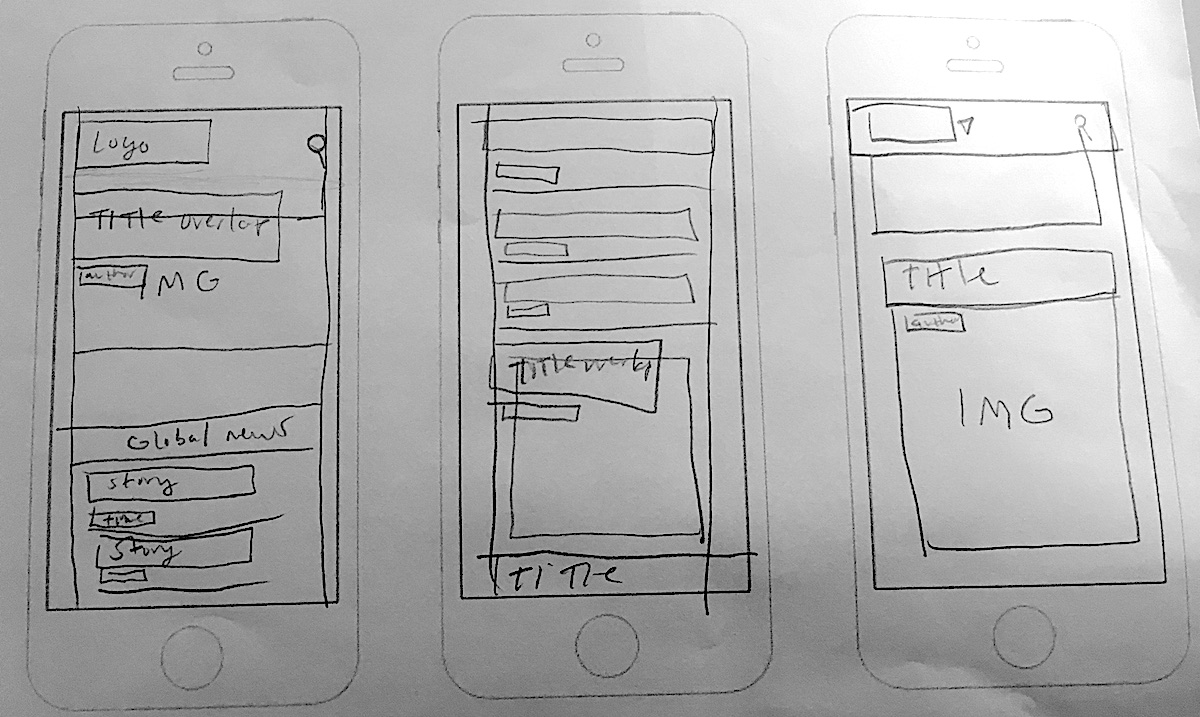 Logo
Title overlap
author
IMG
Global news
story
time
Story
Title overlap
Title
Title
author
IMG